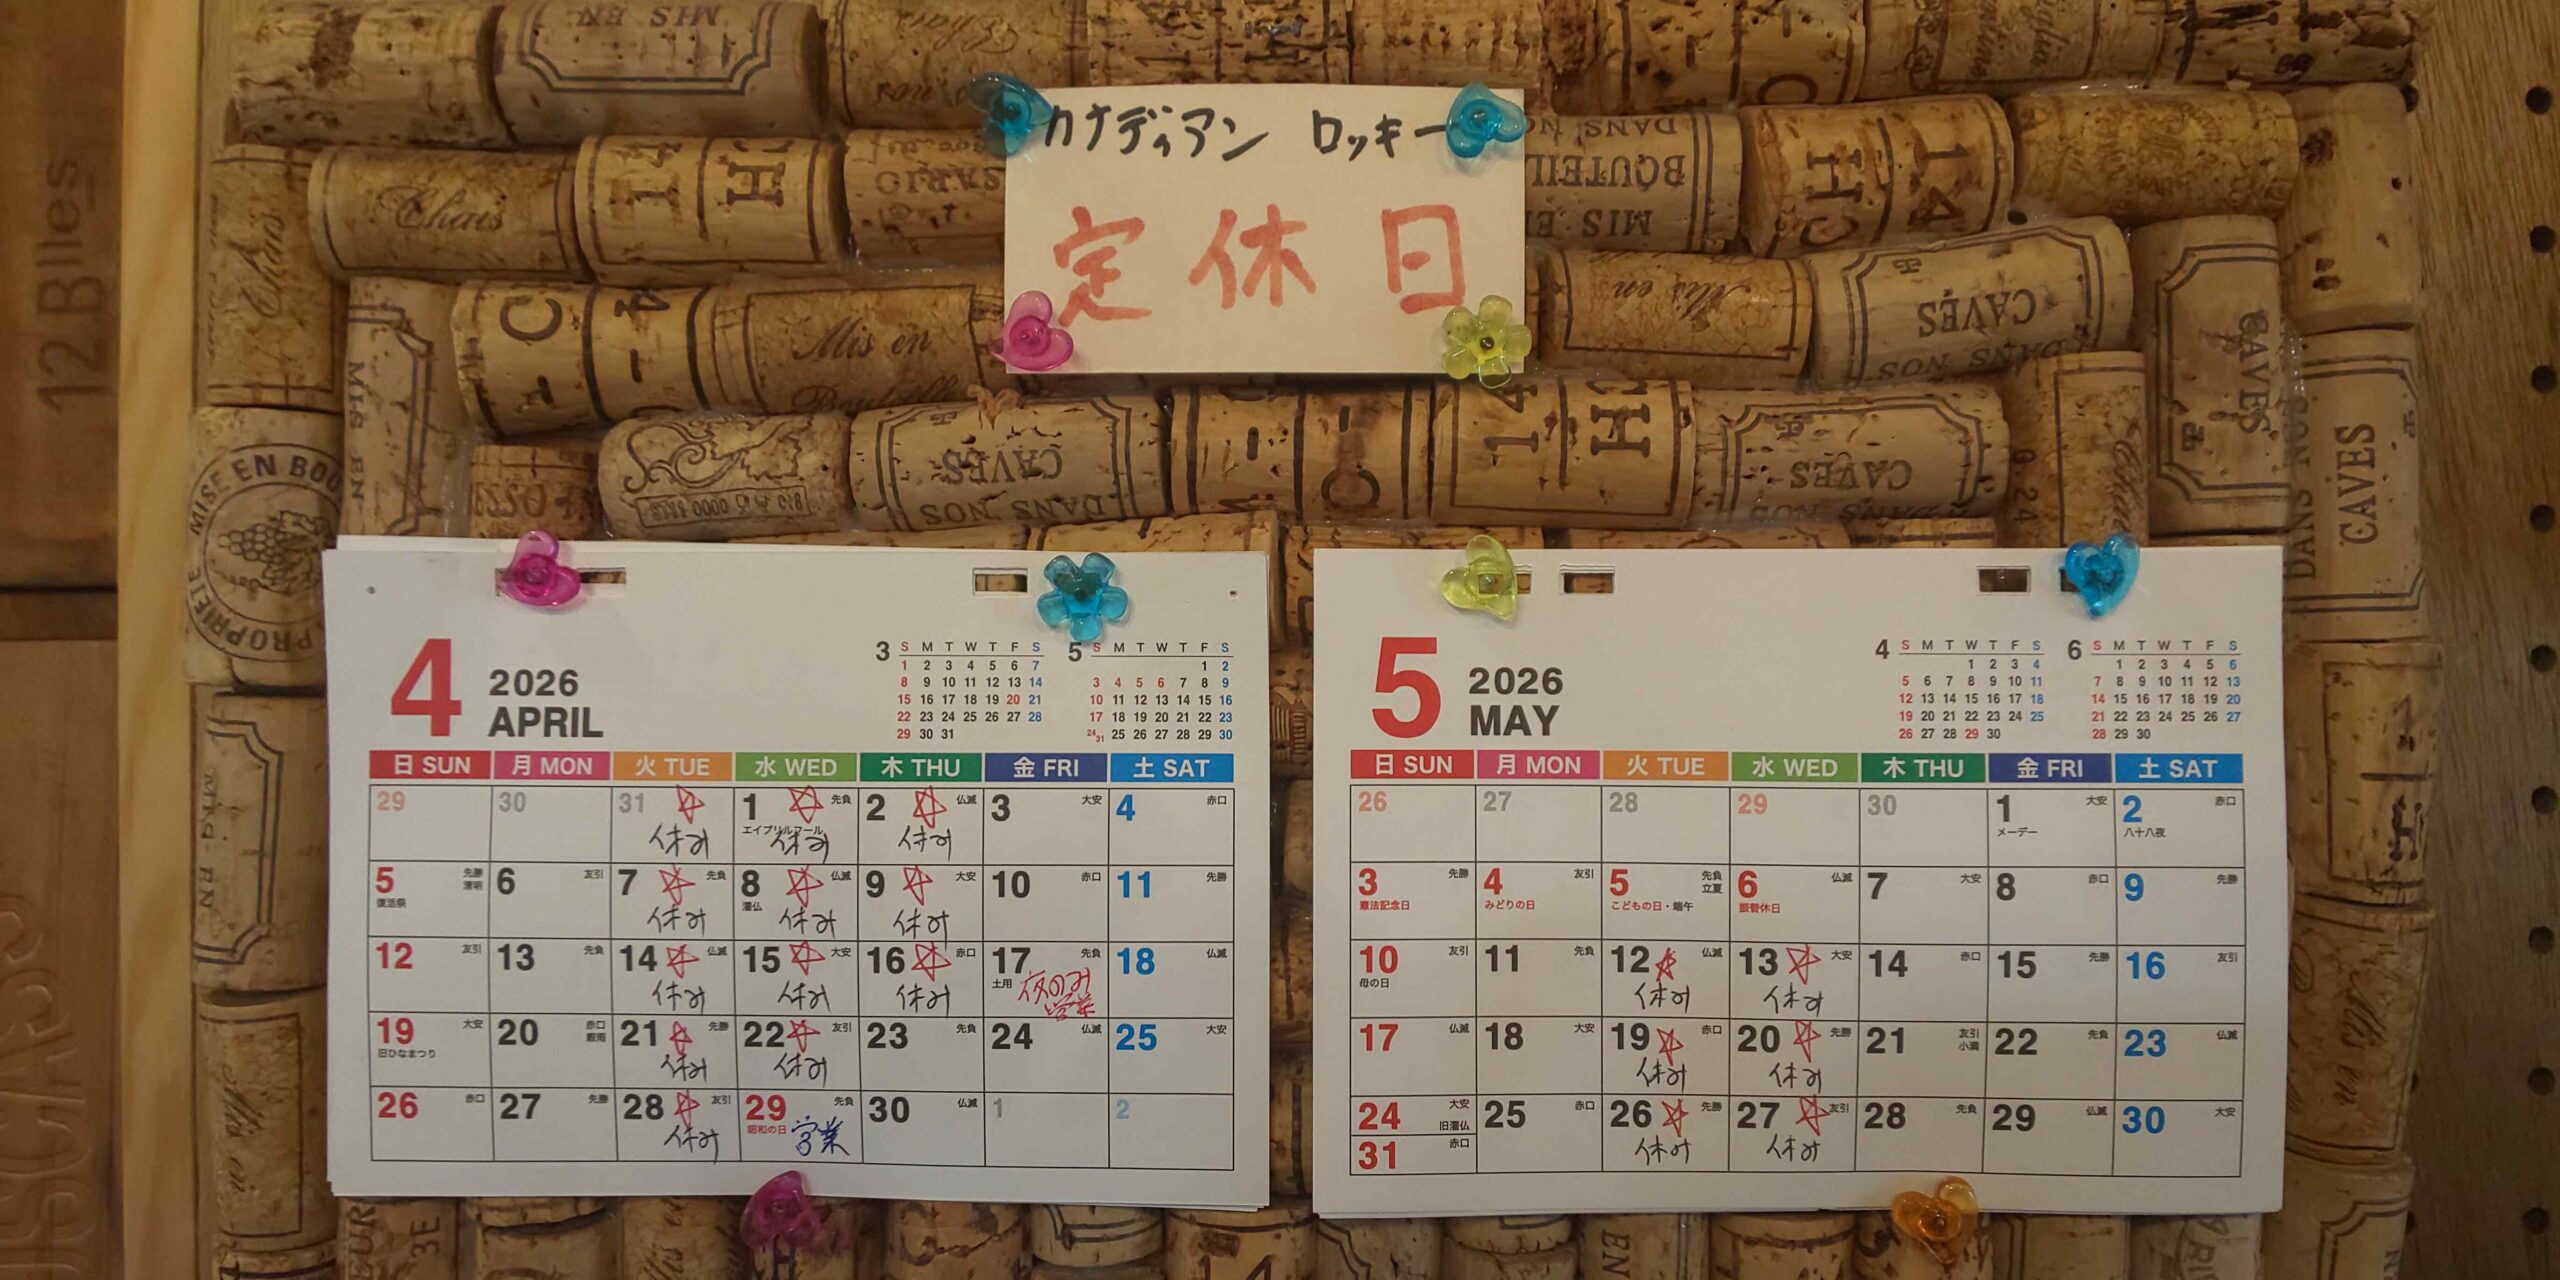 カナディアン ロッキー
定休日
12 Blles
4
2026
APRIL
3
S M T W T F S
1 2 3 4 5 6 7
8 9 10 11 12 13 14
15 16 17 18 19 20 21
22 23 24 25 26 27 28
29 30 31
5
S M T W T F S
1 2
3 4 5 6 7 8 9
10 11 12 13 14 15 16
17 18 19 20 21 22 23
24/31 25 26 27 28 29 30
日 SUN 月 MON 火 TUE 水 WED 木 THU 金 FRI 土 SAT
29 30 31 1 先負 2 仏滅 3 大安 4 赤口
エイプリルフール
休み 休み 休み
5 先勝 6 友引 7 先負 8 仏滅 9 大安 10 赤口 11 先勝
復活祭 清明 灌仏
休み 休み 休み
12 友引 13 先負 14 仏滅 15 大安 16 赤口 17 先負 18 仏滅
土用
休み 休み 休み 夜のみ
営業
19 大安 20 赤口 21 先勝 22 友引 23 先負 24 仏滅 25 大安
旧ひなまつり 穀雨
休み 休み
26 赤口 27 先勝 28 友引 29 先負 30 仏滅 1 2
昭和の日
休み 営業
5
2026
MAY
4
S M T W T F S
1 2 3 4
5 6 7 8 9 10 11
12 13 14 15 16 17 18
19 20 21 22 23 24 25
26 27 28 29 30
6
S M T W T F S
1 2 3 4 5 6
7 8 9 10 11 12 13
14 15 16 17 18 19 20
21 22 23 24 25 26 27
28 29 30
日 SUN 月 MON 火 TUE 水 WED 木 THU 金 FRI 土 SAT
26 27 28 29 30 1 大安 2 赤口
メーデー 八十八夜
3 先勝 4 友引 5 先負 6 仏滅 7 大安 8 赤口 9 先勝
立夏
憲法記念日 みどりの日 こどもの日・端午 振替休日
10 友引 11 先負 12 仏滅 13 大安 14 赤口 15 先勝 16 友引
母の日
休み 休み
17 仏滅 18 大安 19 赤口 20 先勝 21 友引 22 先負 23 仏滅
小満
休み 休み
24 大安 25 赤口 26 先勝 27 友引 28 先負 29 仏滅 30 大安
旧灌仏
31 赤口
休み 休み
MIS EN
Chais
Mis en
CAVES
DANS NOS
CAVES
CAVES
DANS NOS
CAVES
DANS NOS
MISE EN BOU
PROPRIETE
BOUTEIL
MIS E